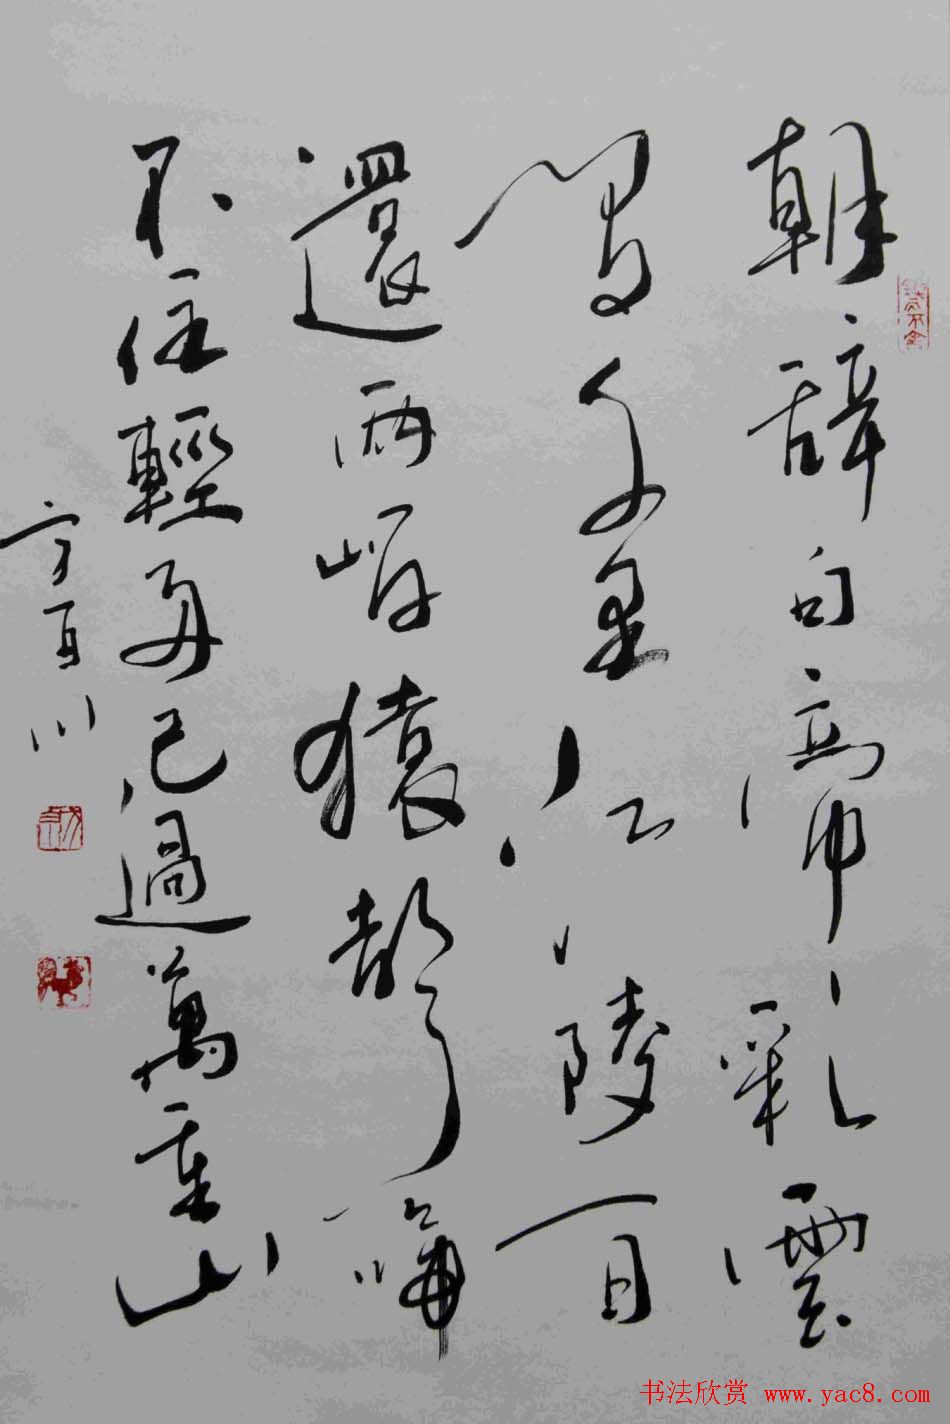 朝辞白帝彩雲
間千里江陵一日
還兩岸猿聲啼
不住輕舟已過萬重山
方百川
书法欣赏 www.yac8.com